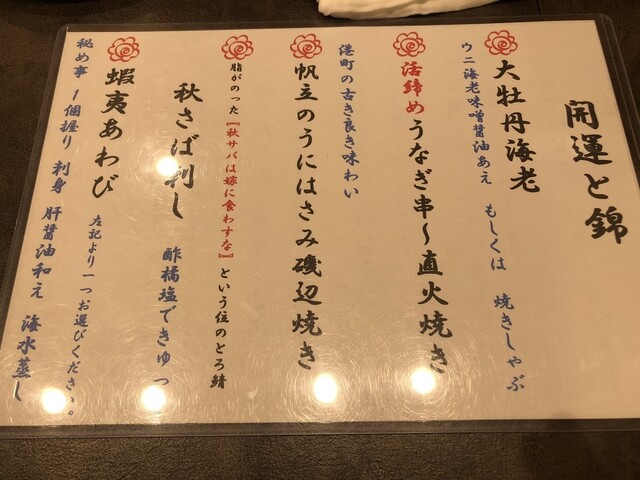 開運と錦
大牡丹海老
ウニ海老味噌醤油あえ もしくは 焼きしゃぶ
活締めうなぎ串～直火焼き
港町の古き良き味わい
帆立のうにはさみ磯辺焼き
脂がのった『秋サバは嫁に食わすな』という位のとろ鯖
秋さば刺し 酢橘塩できゅっ
蝦夷あわび 左記より一つお選びください。
秘め事 1個握り 刺身 肝醤油和え 海水蒸し